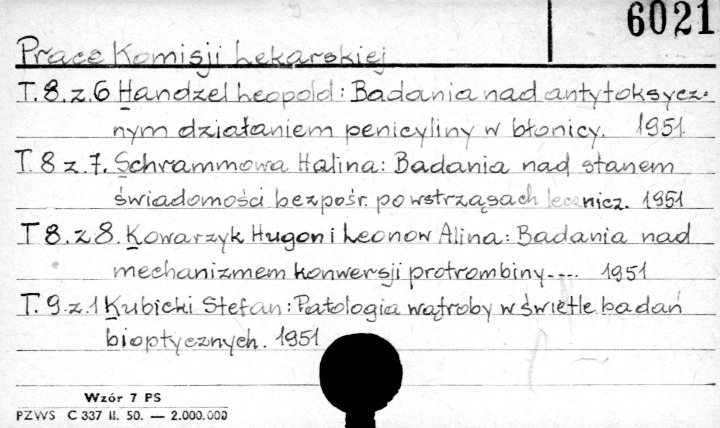 6021
Prace Komisji Lekarskiej
T. 8. z. 6 Handzel Leopold: Badania nad antytoksycz=
nym działaniem penicyliny w błonicy. 1951.
T. 8 z 7. Schrammowa Halina: Badania nad stanem
świadomości bezpośr. po wstrząsach lecznicz. 1951
T 8. z. 8. Kowarzyk Hugon i Leonow Alina: Badania nad
mechanizmem konwersji protrombiny---. 1951
T. 9. z. 1 Kubicki Stefan: Patologia wątroby w świetle badań
bioptycznych. 1951
Wzór 7 PS
PZWS C 337 II. 50. — 2.000.000